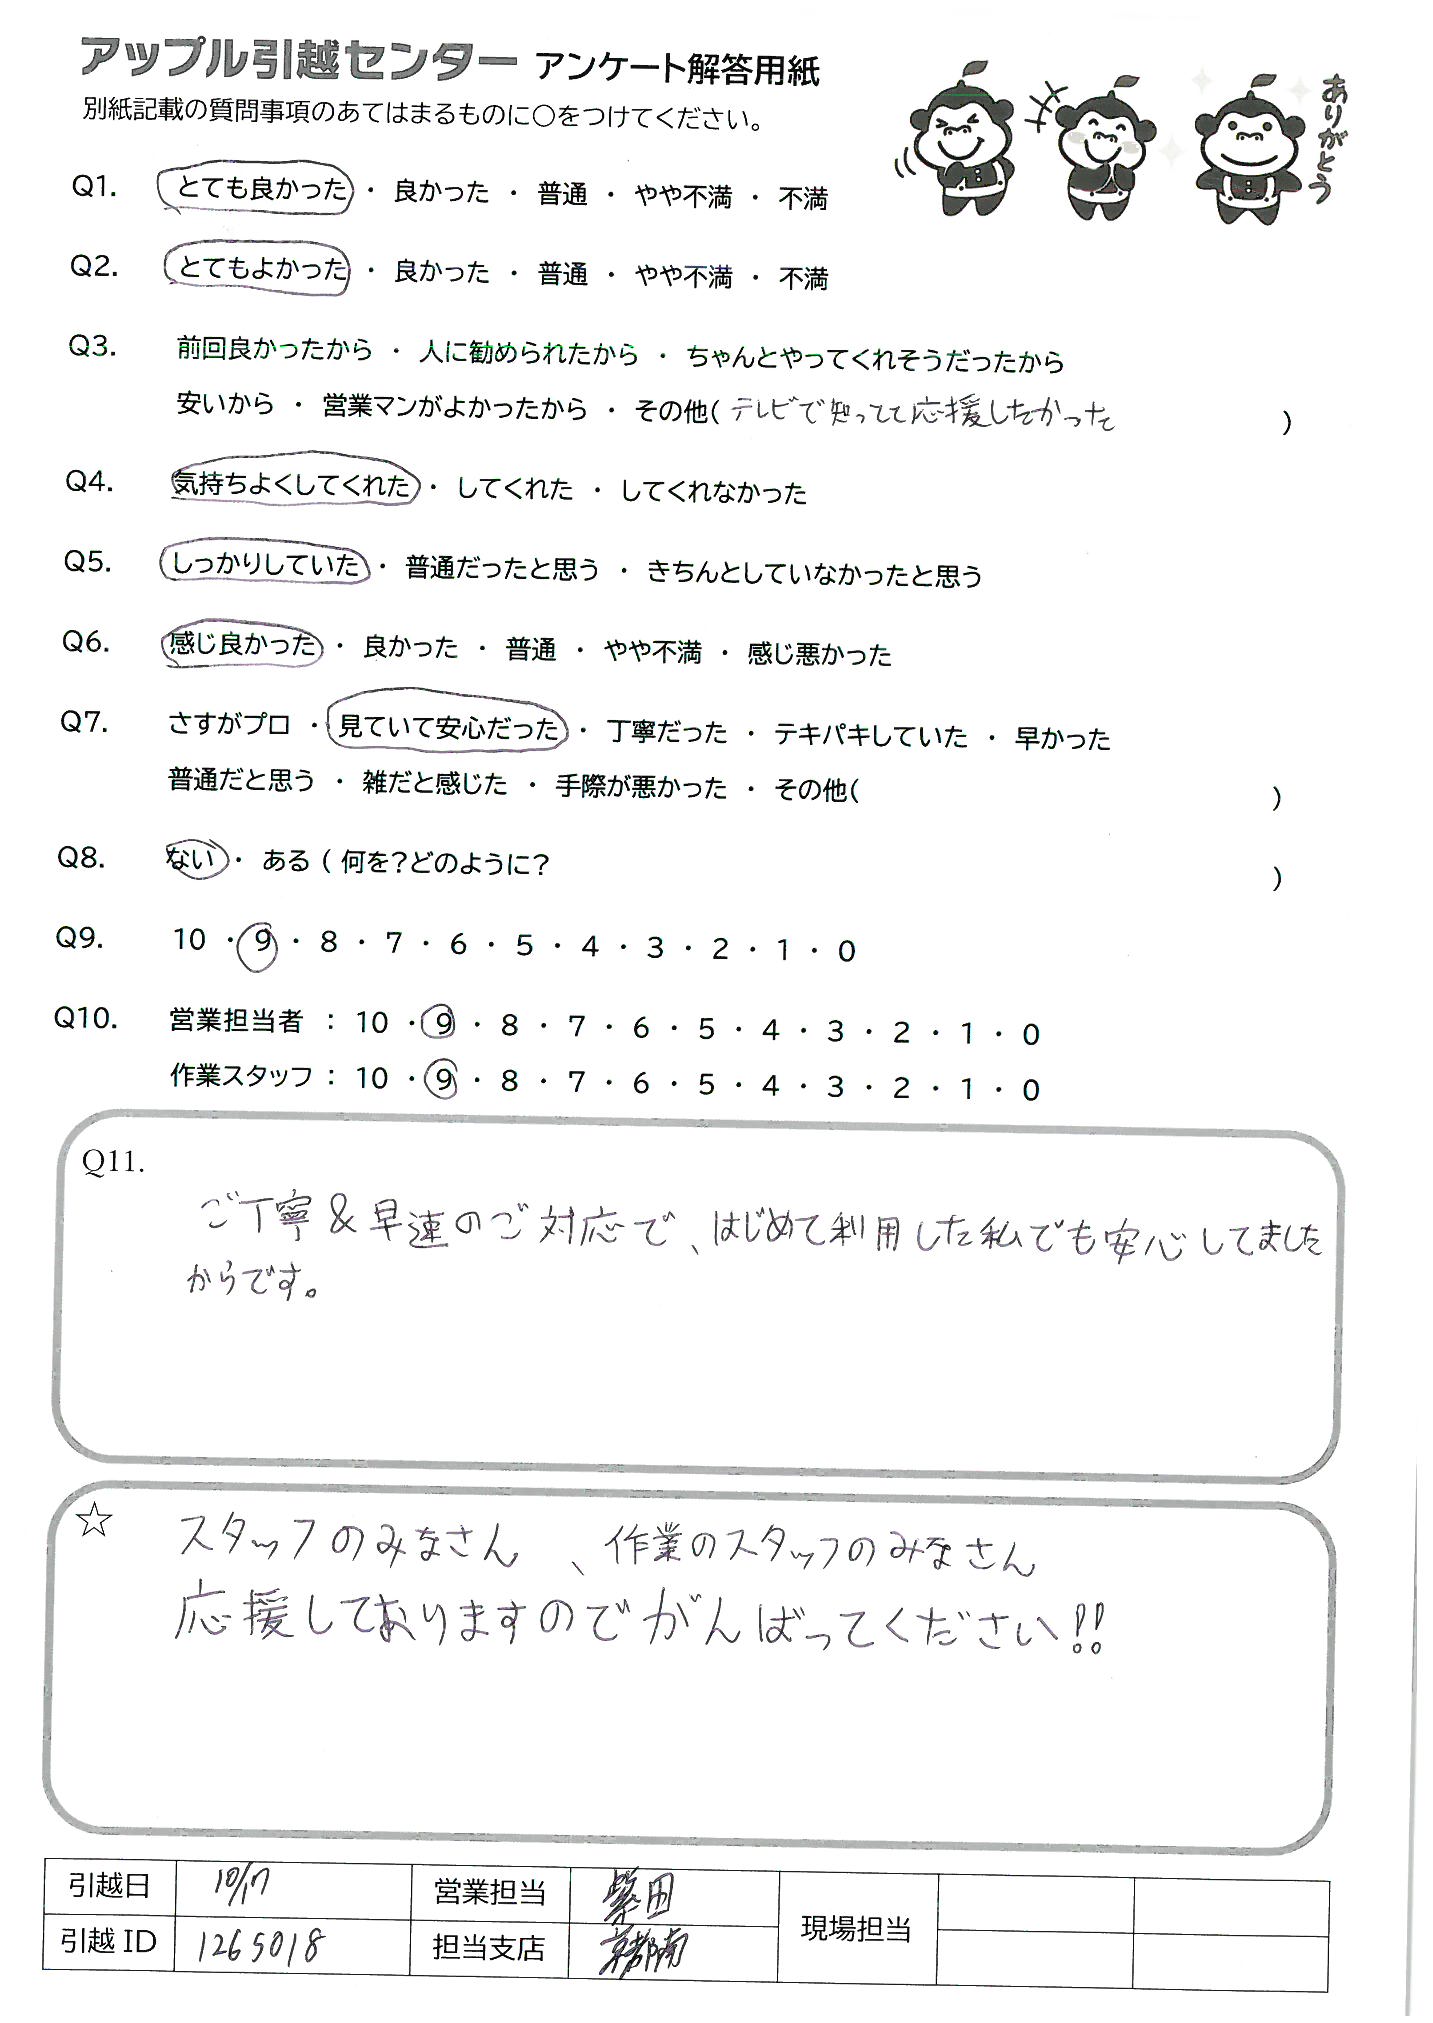 アップル引越センター アンケート解答用紙
別紙記載の質問事項のあてはまるものに○をつけてください。
ありがとう
Q1. とても良かった ・ 良かった ・ 普通 ・ やや不満 ・ 不満
Q2. とてもよかった ・ 良かった ・ 普通 ・ やや不満 ・ 不満
Q3. 前回良かったから ・ 人に勧められたから ・ ちゃんとやってくれそうだったから
安いから ・ 営業マンがよかったから ・ その他( テレビで知ってて応援したかった )
Q4. 気持ちよくしてくれた ・ してくれた ・ してくれなかった
Q5. しっかりしていた ・ 普通だったと思う ・ きちんとしていなかったと思う
Q6. 感じ良かった ・ 良かった ・ 普通 ・ やや不満 ・ 感じ悪かった
Q7. さすがプロ ・ 見ていて安心だった ・ 丁寧だった ・ テキパキしていた ・ 早かった
普通だと思う ・ 雑だと感じた ・ 手際が悪かった ・ その他( )
Q8. ない ・ ある ( 何を?どのように? )
Q9. 10 ・ 9 ・ 8 ・ 7 ・ 6 ・ 5 ・ 4 ・ 3 ・ 2 ・ 1 ・ 0
Q10. 営業担当者 : 10 ・ 9 ・ 8 ・ 7 ・ 6 ・ 5 ・ 4 ・ 3 ・ 2 ・ 1 ・ 0
作業スタッフ : 10 ・ 9 ・ 8 ・ 7 ・ 6 ・ 5 ・ 4 ・ 3 ・ 2 ・ 1 ・ 0
Q11.
ご丁寧&早速のご対応で、はじめて利用した私でも安心してました
からです。
☆ スタッフのみなさん、作業のスタッフのみなさん
応援しておりますのでがんばってください!!
引越日 10/17 営業担当 柴田 現場担当
引越ID 1265018 担当支店 京都南